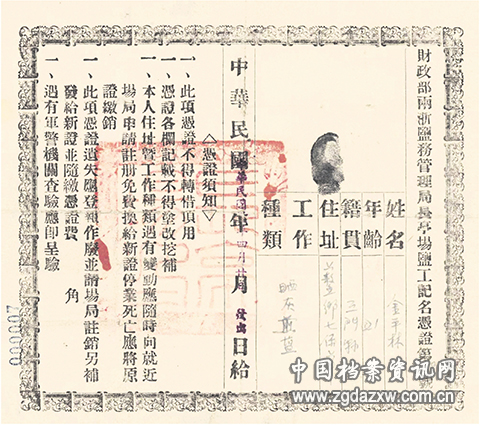 財政部兩浙鹽務管理局長亭場鹽工記名憑證第 號
姓名 金平林
年齡 21
籍貫 三門縣
住址 鄉七保
工作種類 晒灰煎鹽
中華民國 年四月 日給
發出
︿憑證須知﹀
一、此項憑證不得轉借頂用
一、憑證各欄記載不得塗改挖補
一、本人住址暨工作種類遇有變動應隨時向就近
場局申請註册免費換給新證停業死亡應將原
證繳銷
一、此項憑證遺失應登報作廢並請場局註銷另補
發給新證並隨繳憑證費 角
一、遇有軍警機關查驗應即呈驗
000007
中国档案资讯网
www.zgdazxw.com.cn